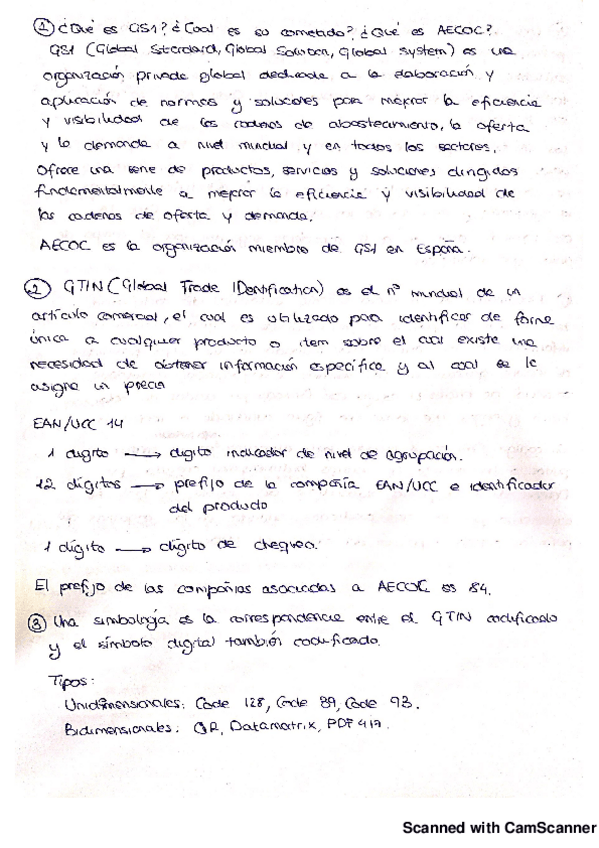 ① ¿Qué es GS1? ¿Cual es su cometido? ¿Qué es AECOC?
GS1 (Global Standard, Global Solution, Global System) es una
organización privada global dedicada a la elaboración y
aplicación de normas y soluciones para mejorar la eficiencia
y visibilidad de las cadenas de abastecimiento, la oferta
y la demanda a nivel mundial y en todos los sectores.
Ofrece una serie de productos, servicios y soluciones dirigidos
fundamentalmente a mejorar la eficiencia y visibilidad de
las cadenas de oferta y demanda.
AECOC es la organización miembro de GS1 en España.
② GTIN (Global Trade IDentification) es el nº mundial de un
artículo comercial, el cual es utilizado para identificar de forma
única a cualquier producto o item sobre el cual existe una
necesidad de obtener información específica y al cual se le
asigna un precio
EAN/UCC 14
1 digito → digito indicador de nivel de agrupación.
12 dígitos → prefijo de la compañía EAN/UCC e identificador
del producto
1 dígito → dígito de chequeo.
El prefijo de las compañías asociadas a AECOC es 84.
③ Una simbología es la correspondencia entre el GTIN codificado
y el símbolo digital también codificado.
Tipos:
Unidimensionales: Code 128, Code 39, Code 93.
Bidimensionales: QR, Datamatrix, PDF 417.
Scanned with CamScanner